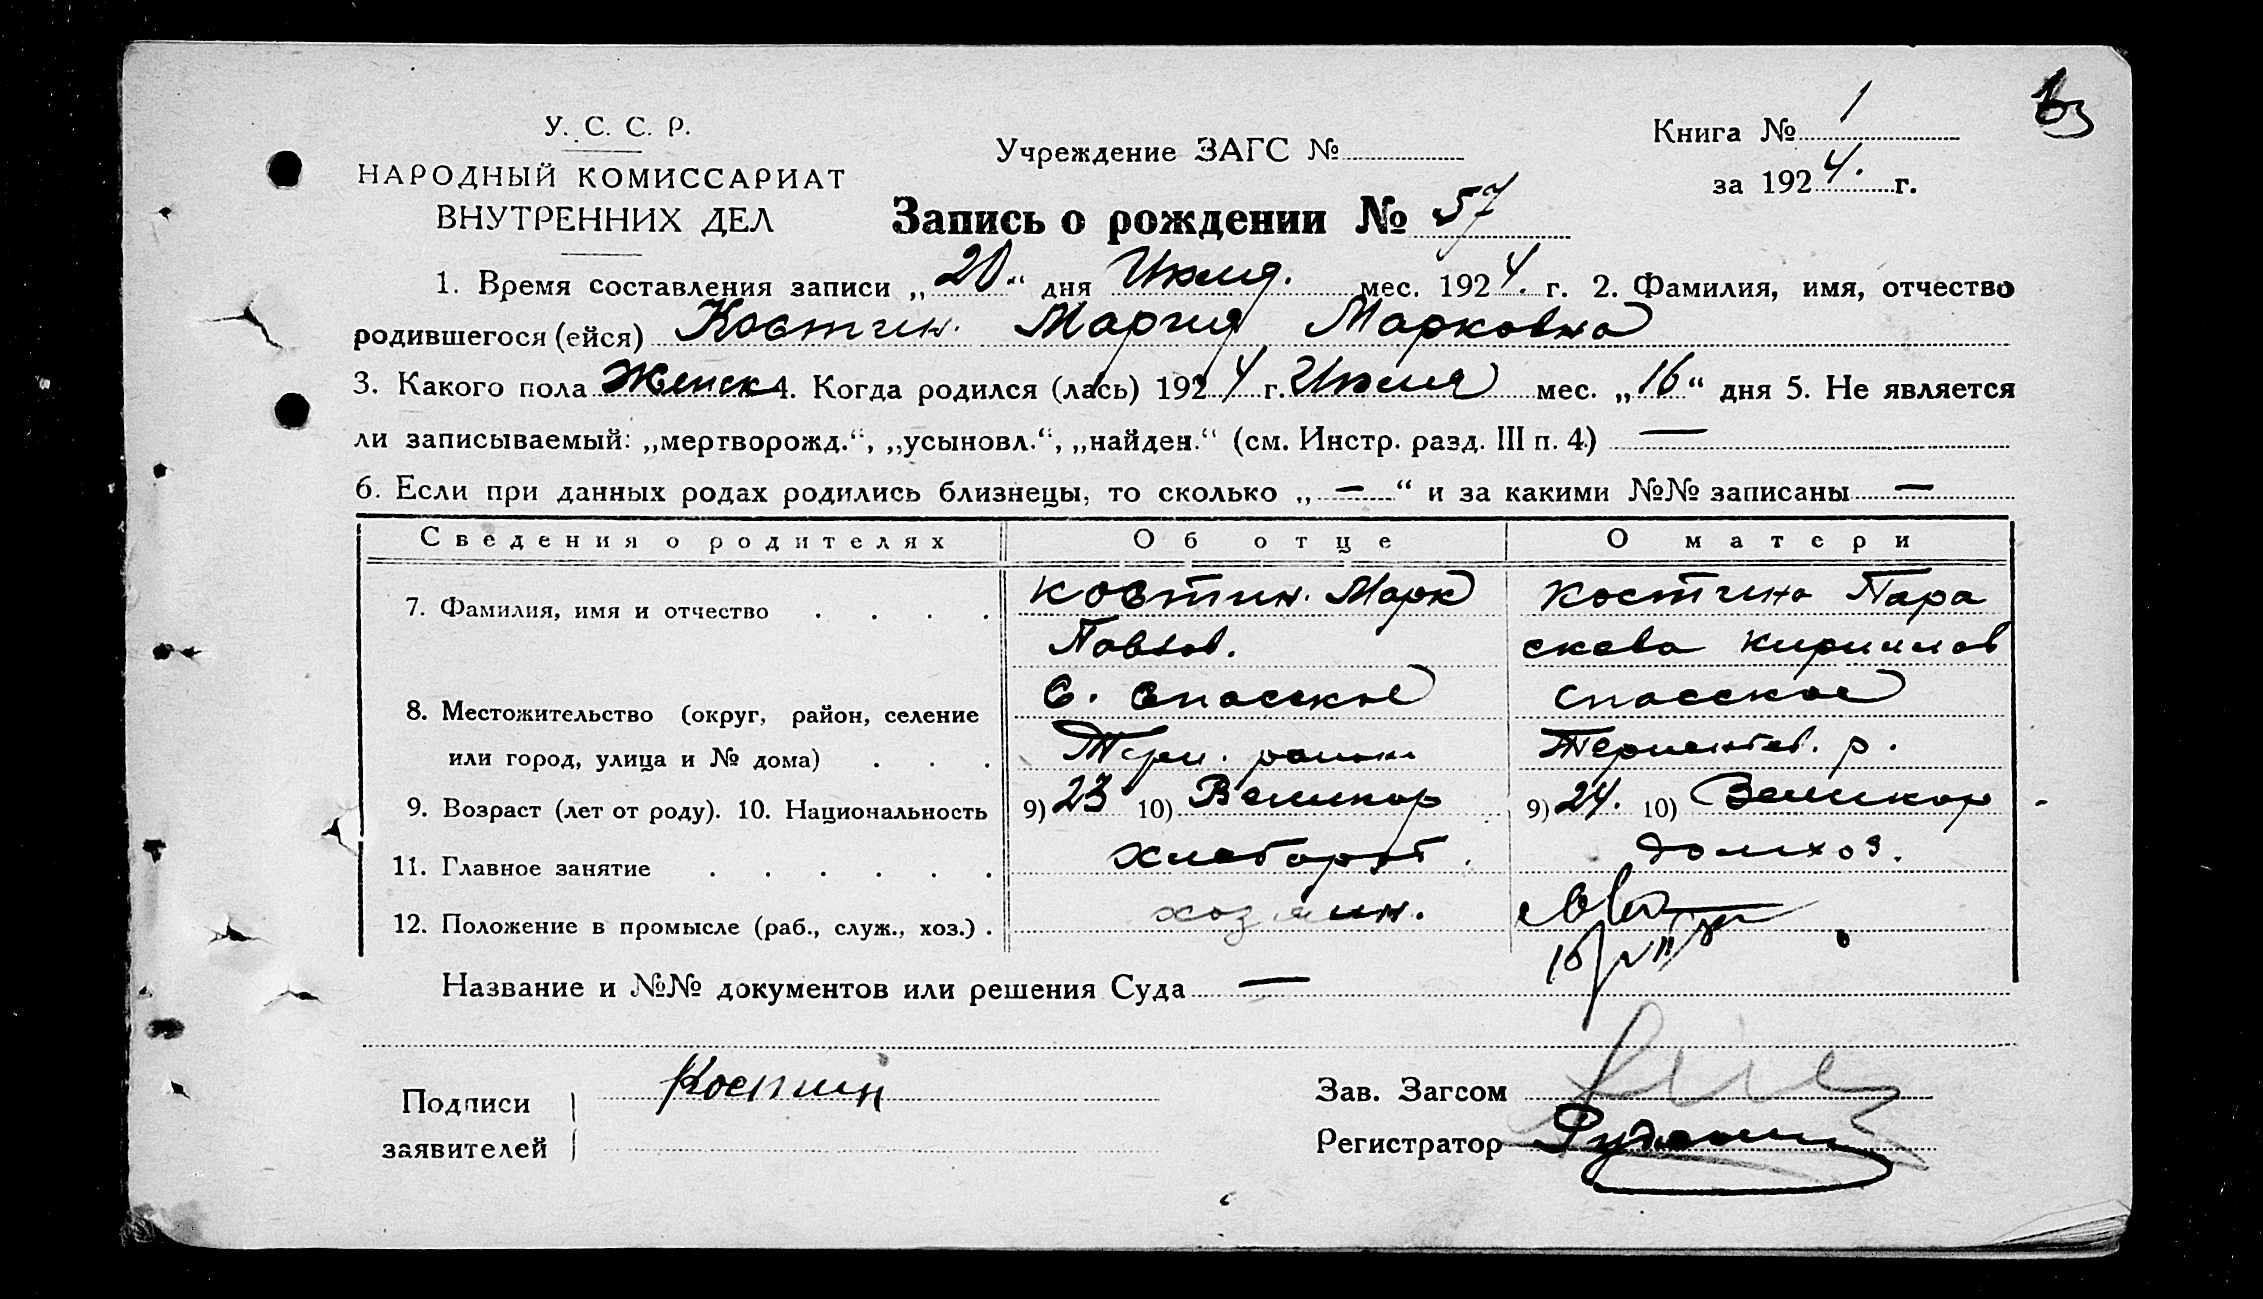 У. С. С. Р.
НАРОДНЫЙ КОМИССАРИАТ
ВНУТРЕННИХ ДЕЛ
Учреждение ЗАГС №
Книга № 1
за 1924. г.
Запись о рождении № 57
1. Время составления записи „20.“ дня Июля. мес. 1924. г. 2. Фамилия, имя, отчество
родившегося (ейся) Костин. Мария Марковна
3. Какого пола Женск 4. Когда родился (лась) 1924 г. Июля мес. „16“ дня 5. Не является
ли записываемый: „мертворожд.“, „усыновл.“, „найден.“ (см. Инстр. разд. III п. 4.) —
6. Если при данных родах родились близнецы, то сколько „—“ и за какими №№ записаны —
Сведения о родителях Об отце О матери
7. Фамилия, имя и отчество . . . . Костин. Марк Костина Пара
Павлов. скева Кириллов
8. Местожительство (округ, район, селение С. Спасское Спасское
или город, улица и № дома) . . . Терн. район р.
9. Возраст (лет от роду). 10. Национальность 9) 23 10) Великор 9) 24. 10) Великор
11. Главное занятие . . . . . . Хлебороб. домхоз.
12. Положение в промысле (раб., служ., хоз.) . хозяин.
Название и №№ документов или решения Суда —
Подписи Костин
заявителей
Зав. Загсом
Регистратор